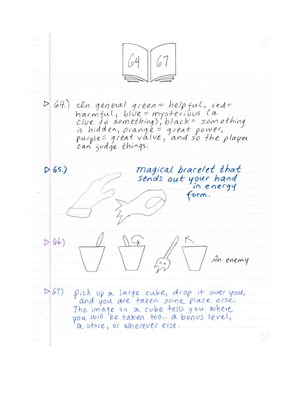 64 67
64.) In general green = helpful, red =
harmful, blue = mysterious (a
clue to something), black = something
is hidden, orange = great power,
purple = great value, and so the player
can judge things.
65.) magical bracelet that
sends out your hand
in energy
form.
66.)
An enemy
67.) pick up a large cube, drop it over you,
and you are taken some place else.
The image on a cube tells you where
you will be taken too.. a bonus level,
a store, or wherever else.